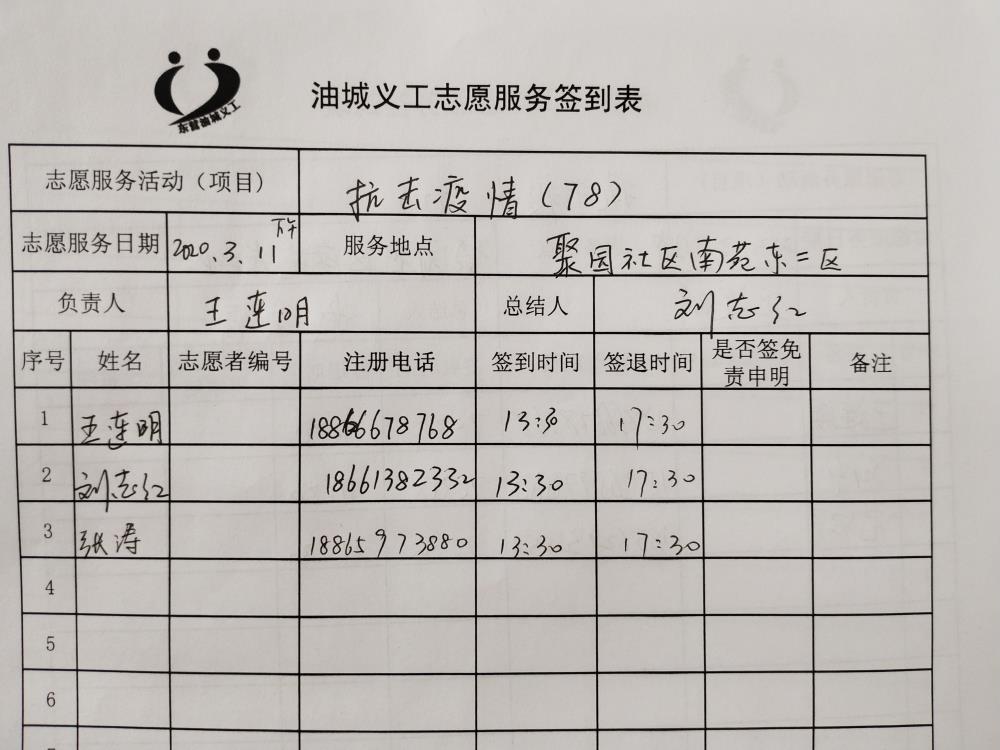 东营油城义工
油城义工志愿服务签到表
志愿服务活动（项目） 抗击疫情（78）
志愿服务日期 2020.3.11 下午 服务地点 聚园社区南苑东二区
负责人 王莲明 总结人 刘志红
序号 姓名 志愿者编号 注册电话 签到时间 签退时间 是否签免责申明 备注
1 王莲明 18866678768 13:30 17:30
2 刘志红 18661382332 13:30 17:30
3 张涛 18865973880 13:30 17:30
4
5
6